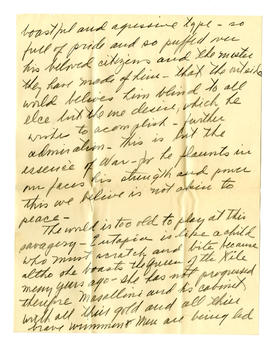 boastful and agressive type - so
full of pride and so puffed over
his beloved citizens and the master
they have made of him - that the outside
world believes him blind to all
else but the one desire, which he
wishes to acomplish - further
admiration - this is but the
essence of War - for he flaunts in
our faces his strength and power
this we believe is not akin to
peace -
The world is too old to play at this
savagery - Ethiopia is like a child
who must scratch and bite because
altho she boasts the Queen of the Nile
many years ago - she has not progressed
therefore Mussolini and his cabinet
with all their gold and all their
brave women Men are being led